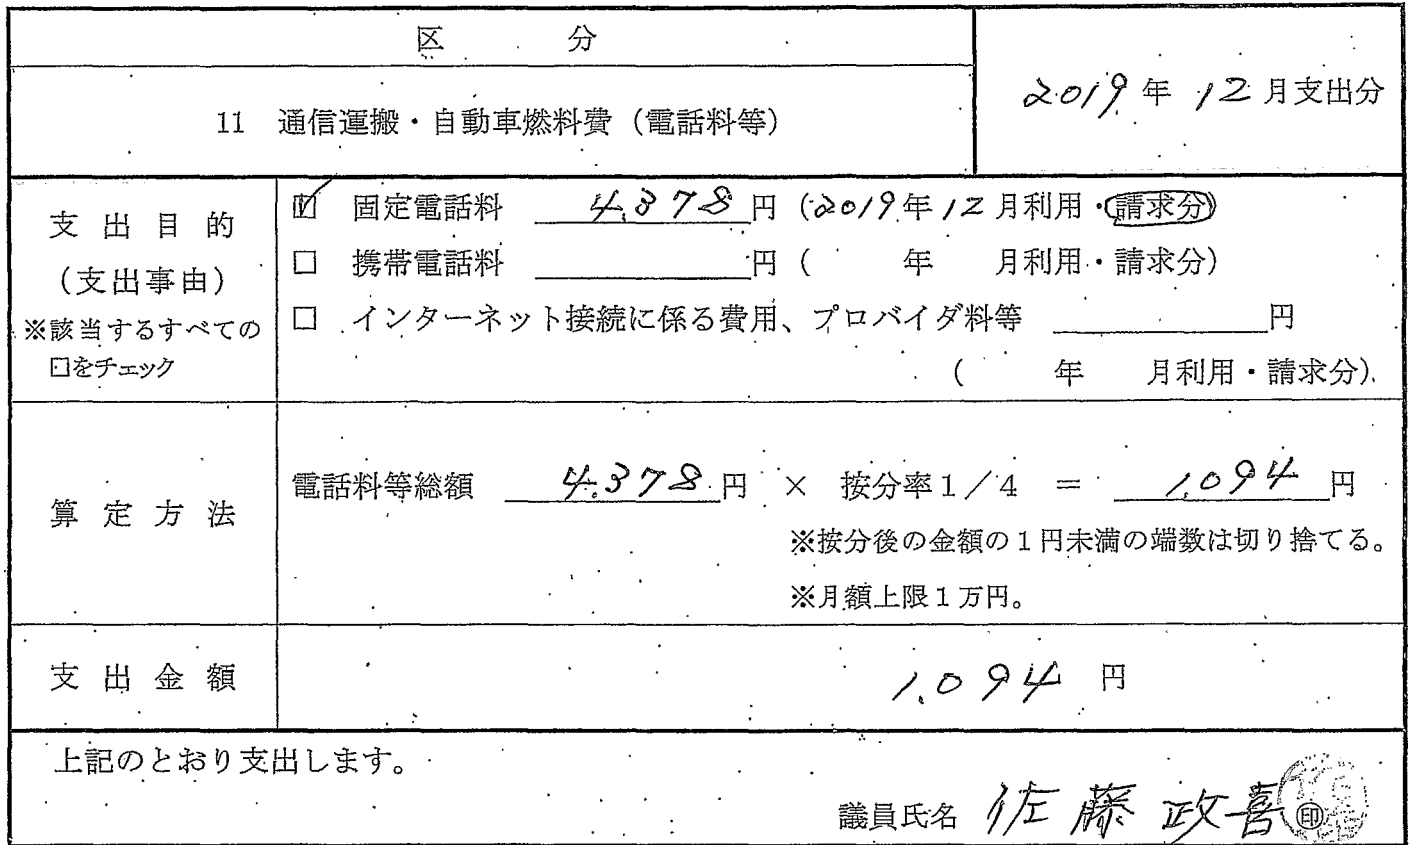 区 分
2019年12月支出分
11 通信運搬・自動車燃料費（電話料等）
支出目的
（支出事由）
※該当するすべての
□をチェック
☑ 固定電話料 4,378円（2019年12月利用・請求分）
□ 携帯電話料 円（ 年 月利用・請求分）
□ インターネット接続に係る費用、プロバイダ料等 円
（ 年 月利用・請求分）
算定方法
電話料等総額 4,378円 × 按分率1／4 ＝ 1,094円
※按分後の金額の1円未満の端数は切り捨てる。
※月額上限1万円。
支出金額
1,094円
上記のとおり支出します。
議員氏名 佐藤政喜 ㊞